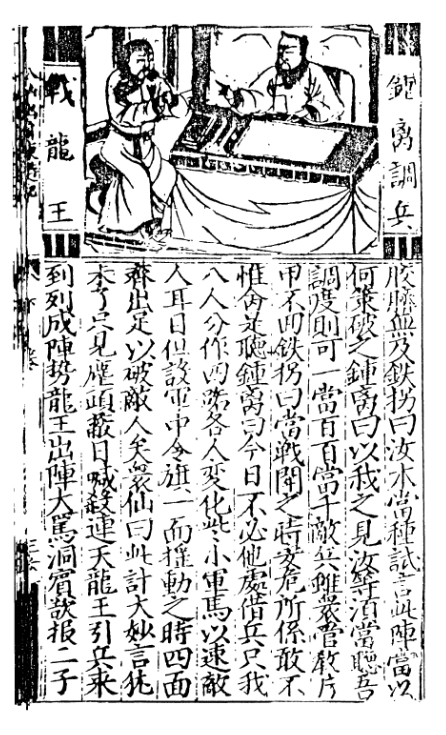 鍾离調兵
戰龍王
膠臍血及鉄拐曰汝未當種試言此陣當以
何策破之鍾离曰以我之見汝等須當聴吾
調度則可一當百百當千敵兵雖衆管教片
甲不回鉄拐曰當戰鬪之時安危所係敢不
惟命是聴鍾离曰今日不必他處借兵只我
八人分作四路各人变化些小軍馬以速敵
人耳目但設軍中令旗一面揺動之時四面
齊出定以破敵人矣衆仙曰此計大妙言犹
未了只見塵頭蔽日喊殺連天龍王引兵来
到列成陣勢龍王出陣大罵洞賔設报二子